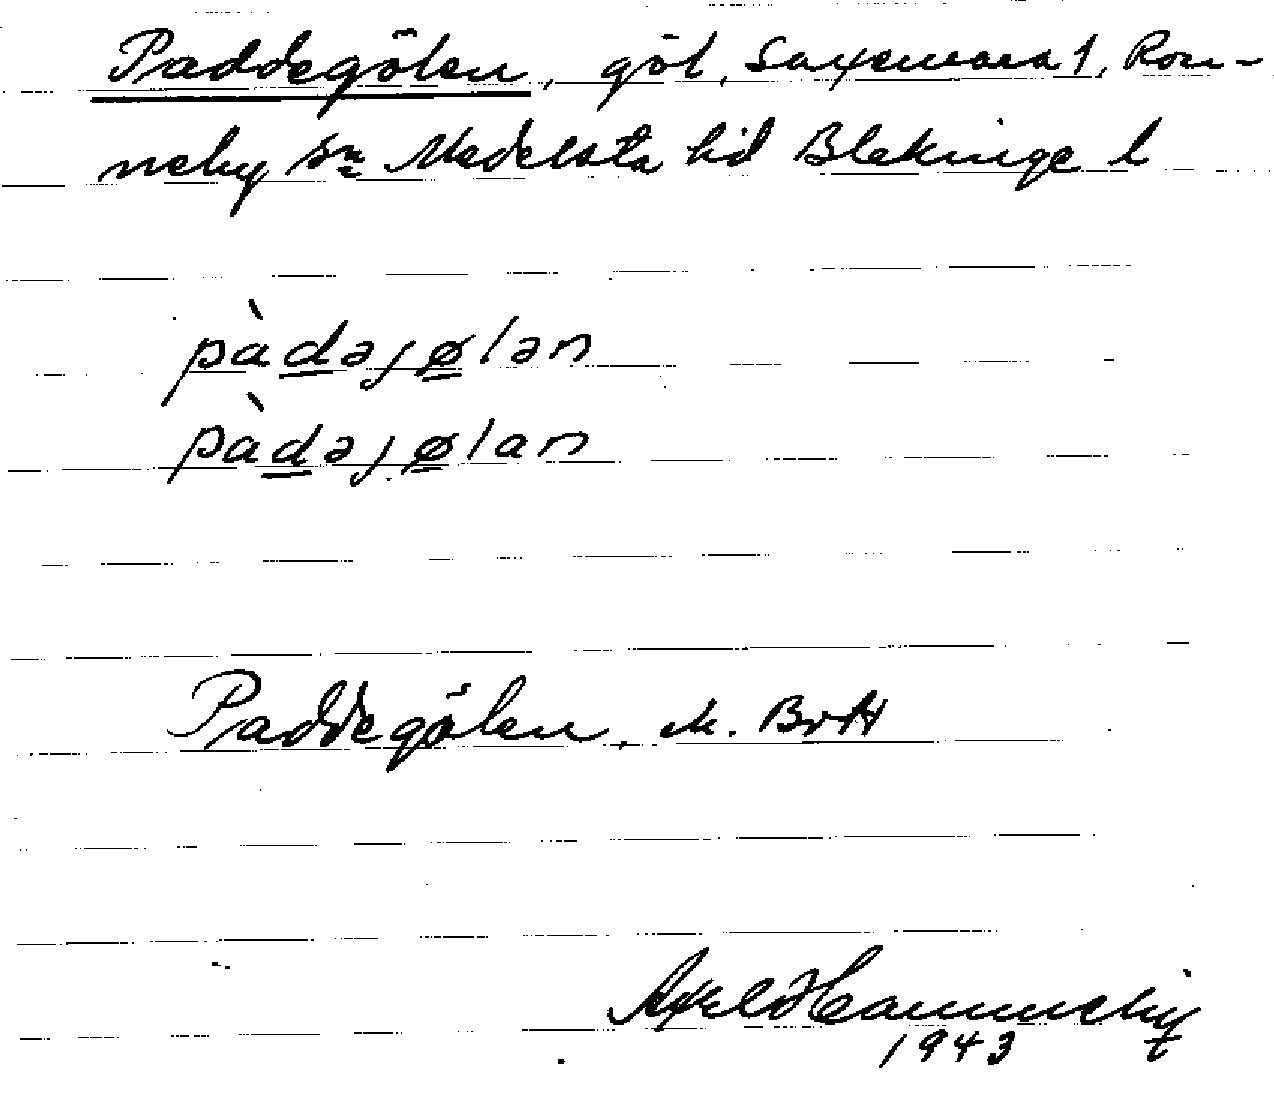 Paddegölen, göl, Saxemara 1, Ron-
neby sn Medelsta hd Blekinge l
pàdəjølən
pàdəjølan
Paddegölen, M. Bott
Axel Hammneby
1943